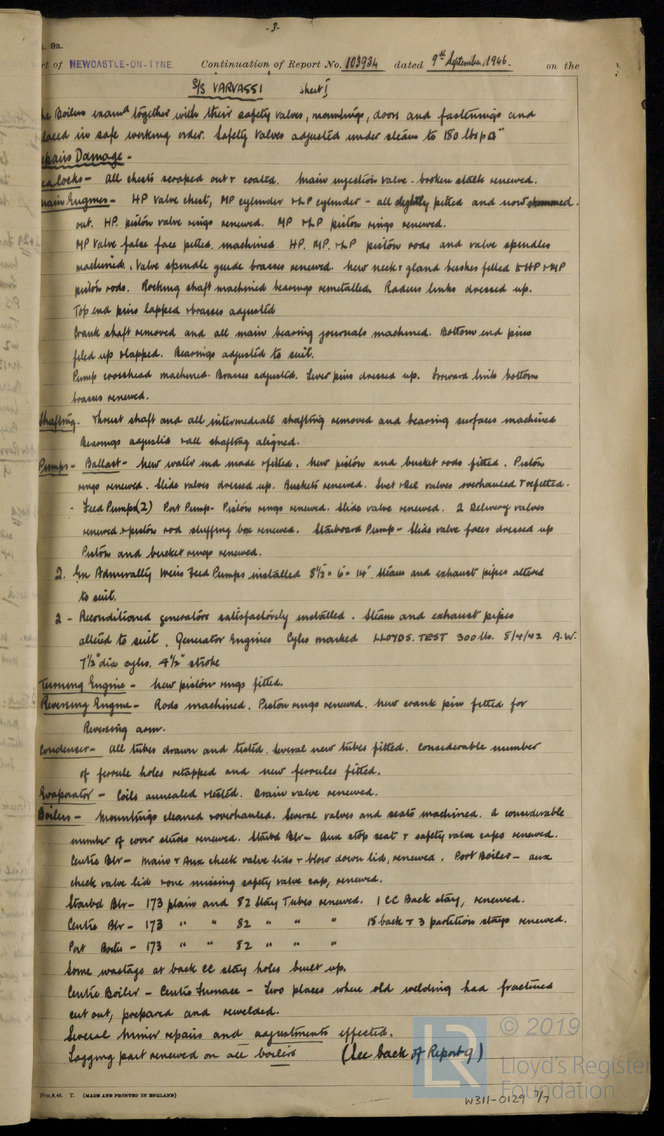 -3-
. 9a.
rt of NEWCASTLE-ON-TYNE. Continuation of Report No. 103934 dated 9th September, 1946. on the
S/S VARVASSI Sheet I
he Boilers examd together with their safety valves, mountings, doors and fastenings and
laced in safe working order. Safety Valves adjusted under steam to 180 lbs p □"
epairs Damage -
ea Cocks - All chests scraped out & coated. Main injection valve - broken studs renewed.
Main Engines - HP valve chest, MP cylinder & LP cylinder - all slightly pitted and now
out. HP. piston valve rings renewed. MP & LP piston rings renewed.
MP Valve false face pitted, machined. HP, MP, & LP piston rods and valve spindles
machined, Valve spindle guide brasses renewed. New neck & gland bushes fitted to HP & MP
piston rods. Rocking shaft machined bearings remetalled. Radius links dressed up.
Top end pins lapped & brasses adjusted
Crank shaft removed and all main bearing journals machined. Bottom end pins
filed up & lapped. Bearings adjusted to suit.
Pump crosshead machined. Brasses adjusted. Lever pins dressed up. Forward links bottom
brasses renewed.
Shafting. Thrust shaft and all intermediate shafting removed and bearing surfaces machined
Bearings adjusted & all shafting aligned.
Pumps - Ballast - New water end made & fitted. New piston and bucket rods fitted. Piston
rings renewed. Slide valves dressed up. Buckets renewed. Suct & Del valves overhauled & refitted.
- Feed Pumps (2) Port Pump - Piston rings renewed. Slide valve renewed. 2 Delivery valves
renewed & piston rod stuffing box renewed. Starboard Pump - Slide valve faces dressed up
Piston and bucket rings renewed.
2. Ex Admiralty Weirs Feed Pumps installed 8½" x 6" x 14". Steam and exhaust pipes altered
to suit.
2 - Reconditioned generators satisfactorily installed. Steam and exhaust pipes
altered to suit. Generator Engines Cyls marked LLOYDS. TEST 300 lbs. 8/4/42 A.W.
7½" dia cyls. 4½" stroke
Turning Engine - New piston rings fitted.
Reversing Engine - Rods machined. Piston rings renewed. New crank pin fitted for
Reversing arm.
Condenser - All tubes drawn and tested. Several new tubes fitted. Considerable number
of ferrule holes retapped and new ferrules fitted.
Evaporator - Coils annealed & tested. Drain valve renewed.
Boilers - Mountings cleaned & overhauled. Several valves and seats machined. A considerable
number of cover studs renewed. Starbd Blr - Aux stop seat & safety valve caps renewed.
Centre Blr - Main & Aux check valve lids & blow down lid, renewed. Port Boiler - aux
check valve lid & one missing safety valve cap, renewed.
Starbd Blr - 173 plain and 82 Stay Tubes renewed. 1 CC Back stay, renewed.
Centre Blr - 173 " " 82 " " " 18 back & 3 partition stays renewed.
Port Boiler - 173 " " 82 " " "
Some wastage at back CC stay holes built up.
Centre Boiler - Centre Furnace - Two places where old welding had fractured
cut out, prepared and rewelded.
Several minor repairs and adjustments effected.
Lagging part renewed on all boilers (See back of Report 9)
© 2019
Lloyd's Register
Foundation
T. (MADE AND PRINTED IN ENGLAND)
W311-0129 3/7